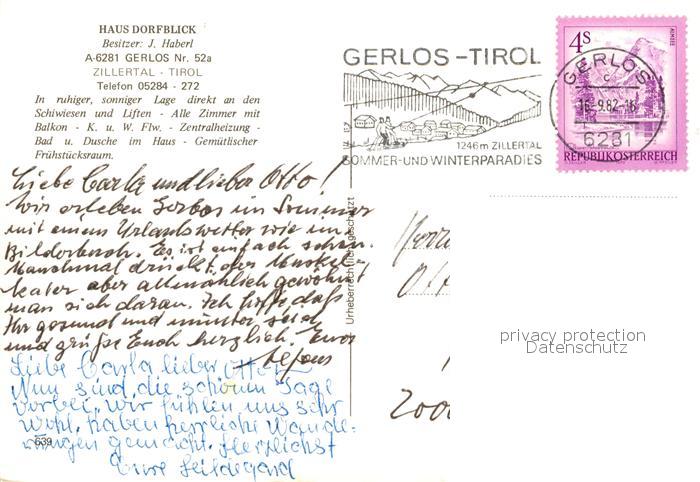 HAUS DORFBLICK
Besitzer: J. Haberl
A-6281 GERLOS Nr. 52a
ZILLERTAL - TIROL
Telefon 05284 - 272
In ruhiger, sonniger Lage direkt an den
Schiwiesen und Liften - Alle Zimmer mit
Balkon - K. u. W. Flw. - Zentralheizung -
Bad u. Dusche im Haus - Gemütlischer
Frühstücksraum.
GERLOS-TIROL
1246m ZILLERTAL
SOMMER-UND WINTERPARADIES
4S
ALMSEE
REPUBLIK ÖSTERREICH
GERLOS
c
16.-9.82-16
6281
Liebe Carla und lieber Otto!
Wir erleben Gerlos im Sommer
mit einem Urlaubswetter wie im
Bilderbuch. Es ist einfach schön.
Manchmal drückt der Muskel-
kater aber allmählich gewöhnt
man sich daran. Ich hoffe daß
Ihr gesund und munter seid
und grüße Euch herzlich. Euer
Alfons
Liebe Carla lieber Otto
Nun sind die schönen Tage
vorbei. Wir fühlen uns sehr
wohl, haben herrliche Wande-
rungen gemacht. Herzlichst
Eure Hildegard
639
Urheberrechtlich geschützt
Herrn
Ott
2000
privacy protection
Datenschutz